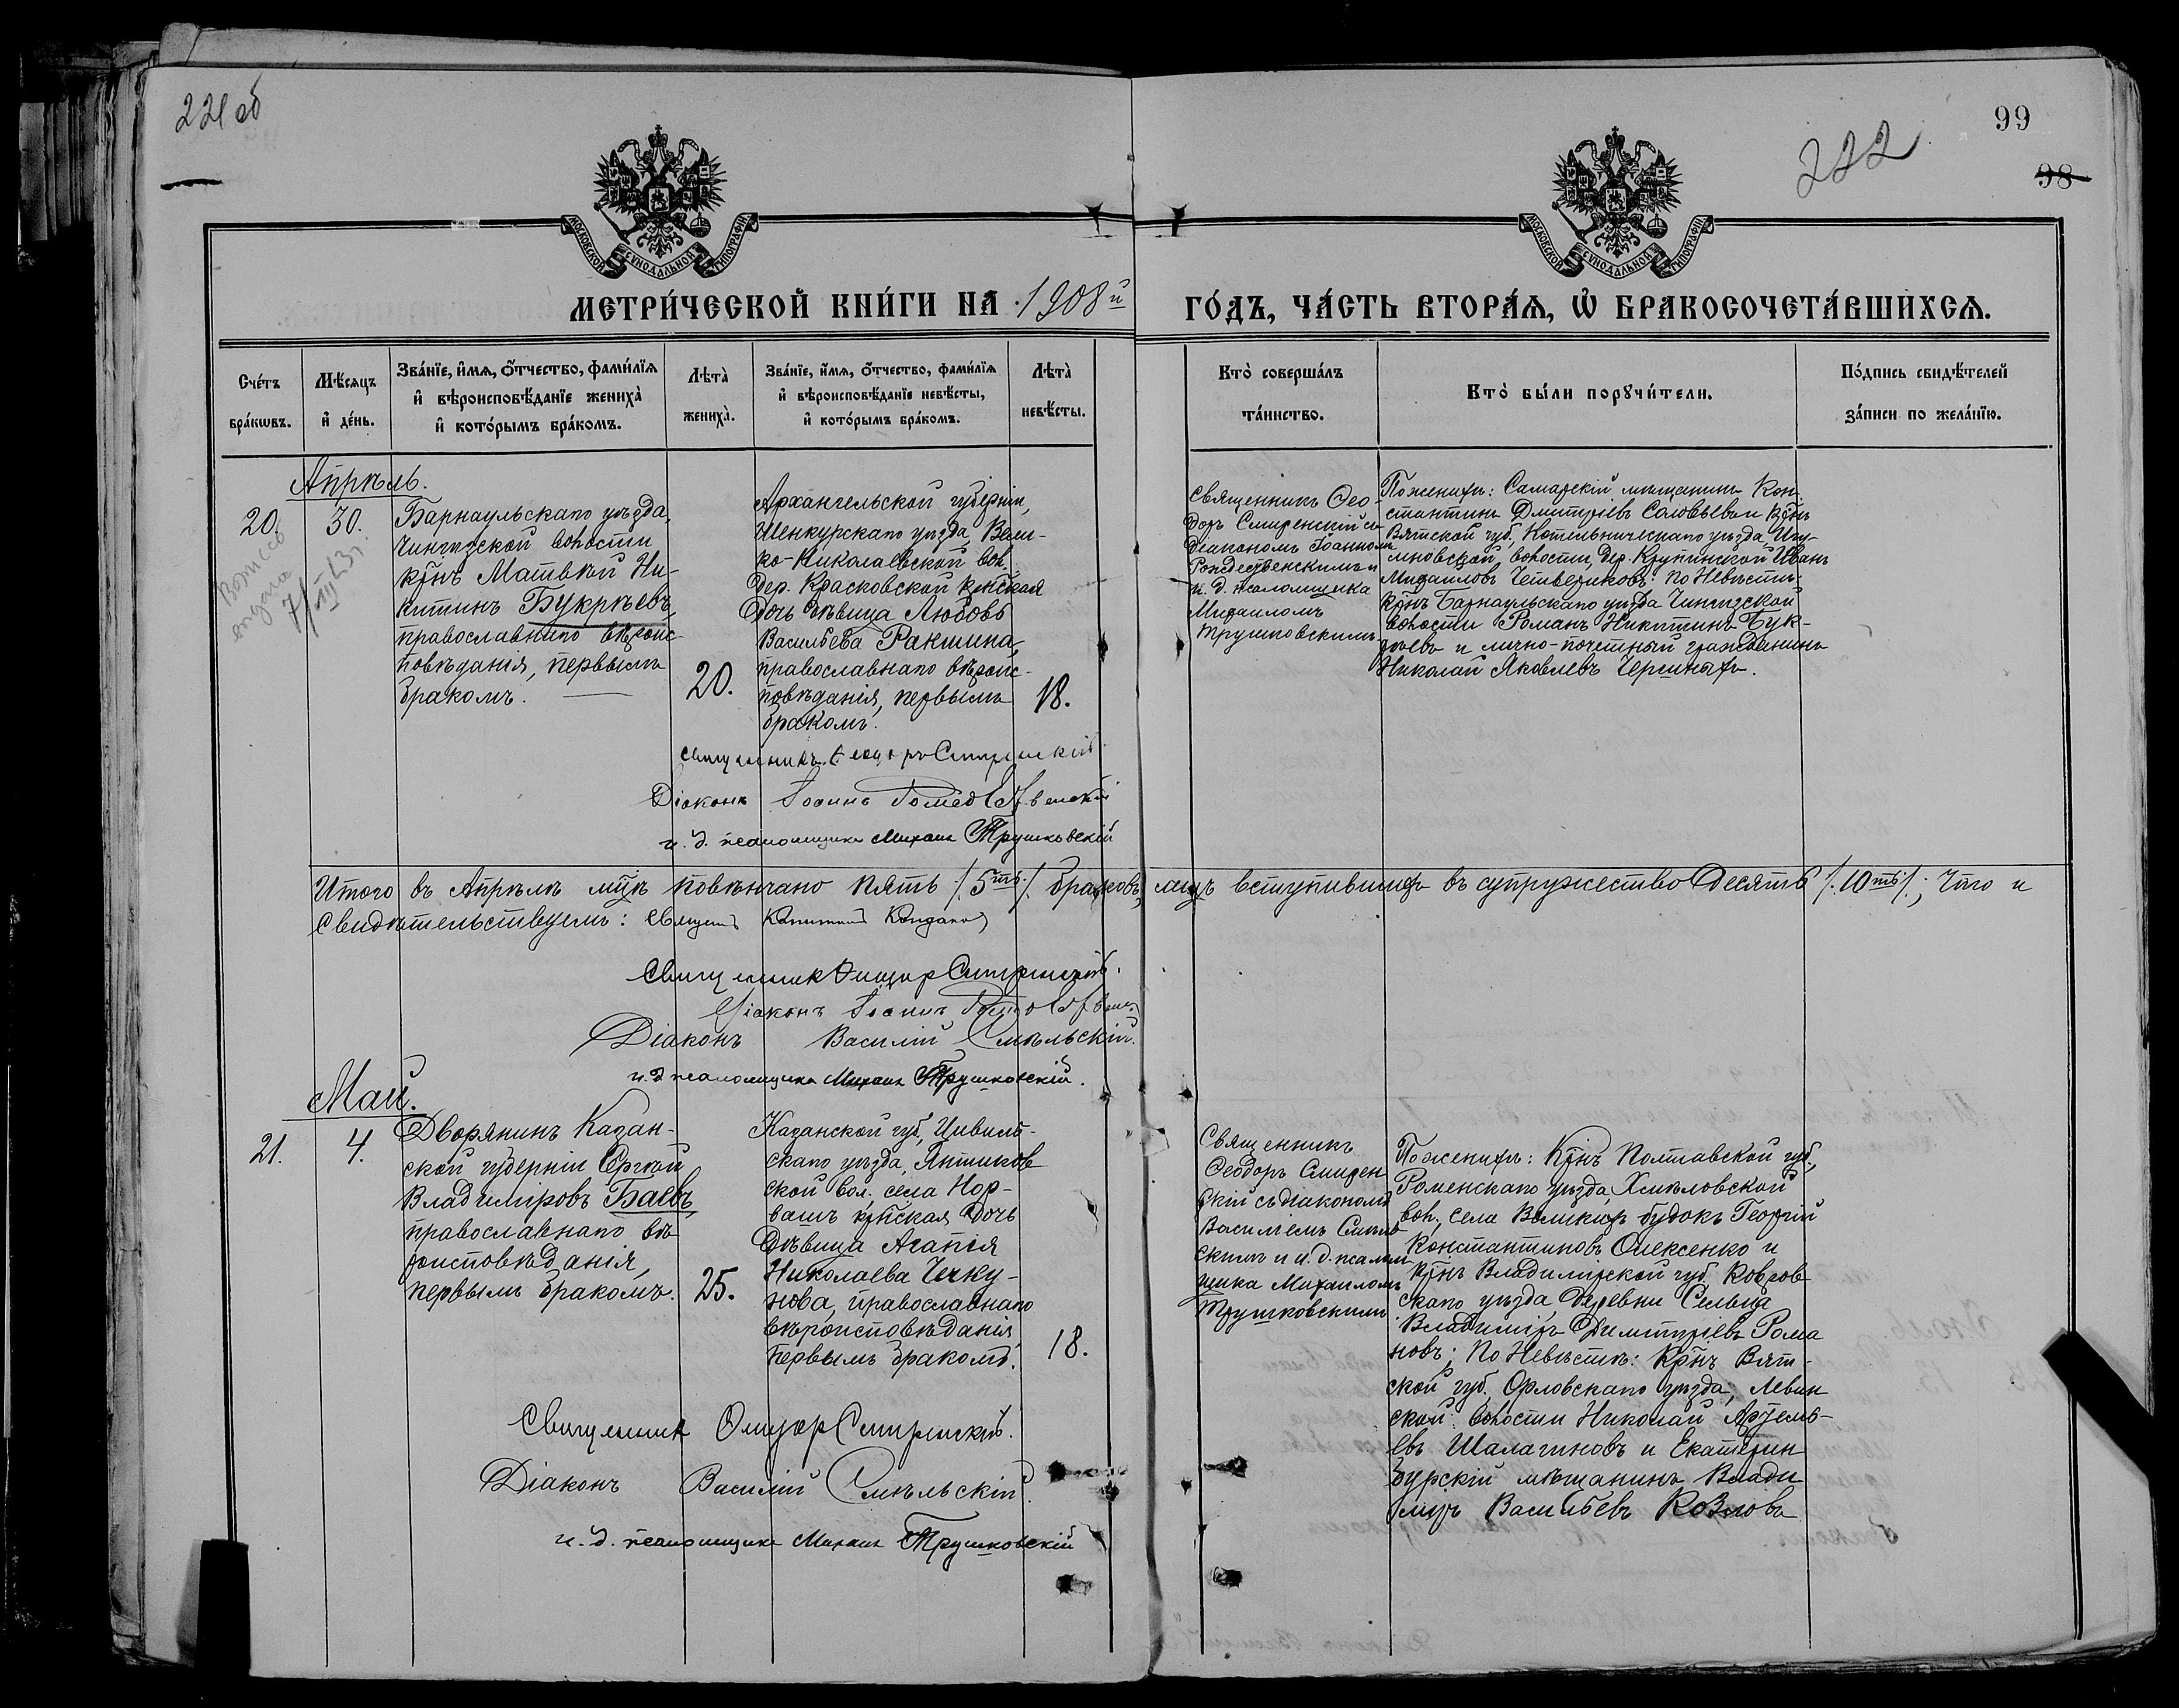 221 об
99
222
98
МОСКОВСКОЙ СѴНОДАЛЬНОЙ ТИПОГРАФІИ
МОСКОВСКОЙ СѴНОДАЛЬНОЙ ТИПОГРАФІИ
МЕТРИ́ЧЕСКОЙ КНИ́ГИ НА 1908й ГО́ДЪ, ЧА́СТЬ ВТОРА́Ѧ, Ѡ҆ БРАКОСОЧЕТА́ВШИХСѦ.
Сче́тъ бра́кѡвъ.
Мѣ́сяцъ и҆ де́нь.
Зва́нїе, и҆́мя, ѻ҆́тчество, фами́лїя
и҆ вѣроисповѣ́данїе жениха̀
и҆ кото́рымъ бра́комъ.
Лѣта̀ жениха̀.
Зва́нїе, и҆́мя, ѻ҆́тчество, фами́лїя
и҆ вѣроисповѣ́данїе невѣ́сты,
и҆ кото́рымъ бра́комъ.
Лѣта̀ невѣ́сты.
Кто̀ соверша́лъ та́инство.
Кто̀ бы́ли порꙋчи́тели.
По́дпись свидѣ́телей за́писи по жела́нїю.
Апрѣль.
20.
30.
Барнаульскаго уѣзда,
Чингизской волости
кр̃нъ Матвѣй Ни-
китинъ Букрѣевъ,
православнаго вѣроис-
повѣданія, первымъ
бракомъ.
20.
Архангельской губерніи,
Шенкурскаго уѣзда, Вели-
ко-Николаевской вол.
дер. Красковской кр̃нская
дочь дѣвица Любовь
Васильева Ракшина,
православнаго вѣроис-
повѣданія, первымъ
бракомъ.
18.
Священникъ Ѳео-
доръ Смиренскій съ
діакономъ Іоанномъ
Рождественскимъ и
и. д. псаломщика
Михаиломъ
Трушковскимъ.
По женихѣ: Самарскій мѣщанинъ Кон-
стантинъ Дмитріевъ Соловьевъ и кр̃нъ
Вятской губ, Котельническаго уѣзда,
волости, дер. Крутинской Иванъ
Михаиловъ Четвериковъ. по Невѣстѣ:
кр̃нъ Барнаульскаго уѣзда Чингизской
волости Романъ Никитинъ Бук-
рѣевъ и лично-почетный гражданинъ
Николай Яковлевъ Черныхъ.
Священникъ Ѳеодоръ Смиренскій.
Діаконъ Іоаннъ Рождественскій
и. д. псаломщика Михаилъ Трушковскій
Итого въ Апрѣлѣ мц̃ѣ повѣнчано пять /.5ть./. браковъ, лицъ вступившихъ въ супружество десять /.10ть/.; что и
свидѣтельствуемъ: Священ
Священникъ Ѳеодоръ Смиренскій.
Діаконъ Іоаннъ Рождествен.
Діаконъ Василій Смѣльскій.
и. д псаломщика Михаилъ Трушковскій.
Май.
21.
4.
Дворянинъ Казан-
ской губерніи Сергѣй
Владиміровъ Баевъ,
православнаго вѣ-
роисповѣданія,
первымъ бракомъ.
25.
Казанской губ, Цивиль-
скаго уѣзда, Янтиков
ской вол. села Нор-
вашъ кр̃нская дочь
дѣвица Агапія
Николаева Чечку-
нова, православнаго
вѣроисповѣданія
первымъ бракомъ.
18.
Священникъ
Ѳеодоръ Смирен
скій съ діакономъ
Василіемъ Смѣль
скимъ и и. д. псалом-
щика Михаиломъ
Трушковскимъ.
По женихѣ: Кр̃нъ Полтавской губ,
Роменскаго уѣзда, Хмѣловской
вол, села Великихъ будокъ Георгій
Константиновъ Олексенко и
кр̃нъ Владимірской губ. Ковров
скаго уѣзда, деревни Сельца
Владиміръ Димитріевъ Рома
новъ; по Невѣстѣ: Кр̃нъ Вят-
ской губ. Орловскаго уѣзда, Левин
ской волости Николай Артемь-
евъ Шалагиновъ и Екатерин
бургскій мѣщанинъ Влади
міръ Васильевъ Козловъ
Священникъ Ѳеодоръ Смиренскій.
Діаконъ Василій Смѣльскій.
и. д. псаломщика Михаилъ Трушковскій